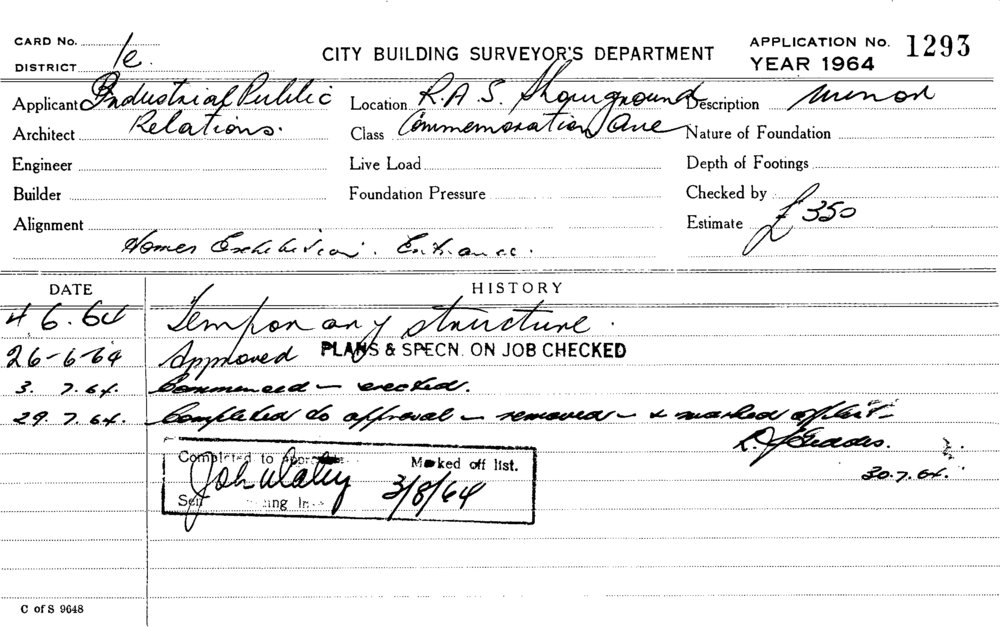 CARD No.
DISTRICT 1e.
CITY BUILDING SURVEYOR'S DEPARTMENT
APPLICATION No. 1293
YEAR 1964
Applicant Industrial Public Location R.A.S. Showground Description Minor
Architect Relations. Class Commemoration Ave Nature of Foundation
Engineer Live Load Depth of Footings
Builder Foundation Pressure Checked by
Alignment Estimate £350
Homes Exhibition. Entrance.
DATE HISTORY
4.6.64 Temporary structure.
26-6-64 Approved PLANS & SPECN. ON JOB CHECKED
3. 7.64. Commenced - erected.
29.7.64. Completed to approval - removed - & marked off list -
30.7.64.
Completed to Marked off list.
3/8/64
C of S 9648